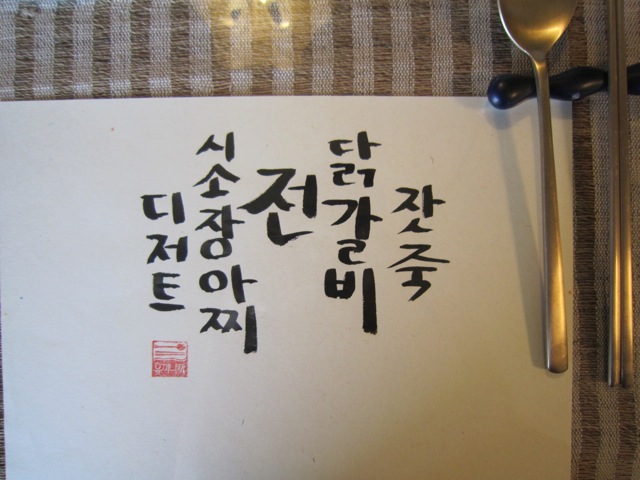 잣죽
닭갈비
전
시소장아찌
디저트